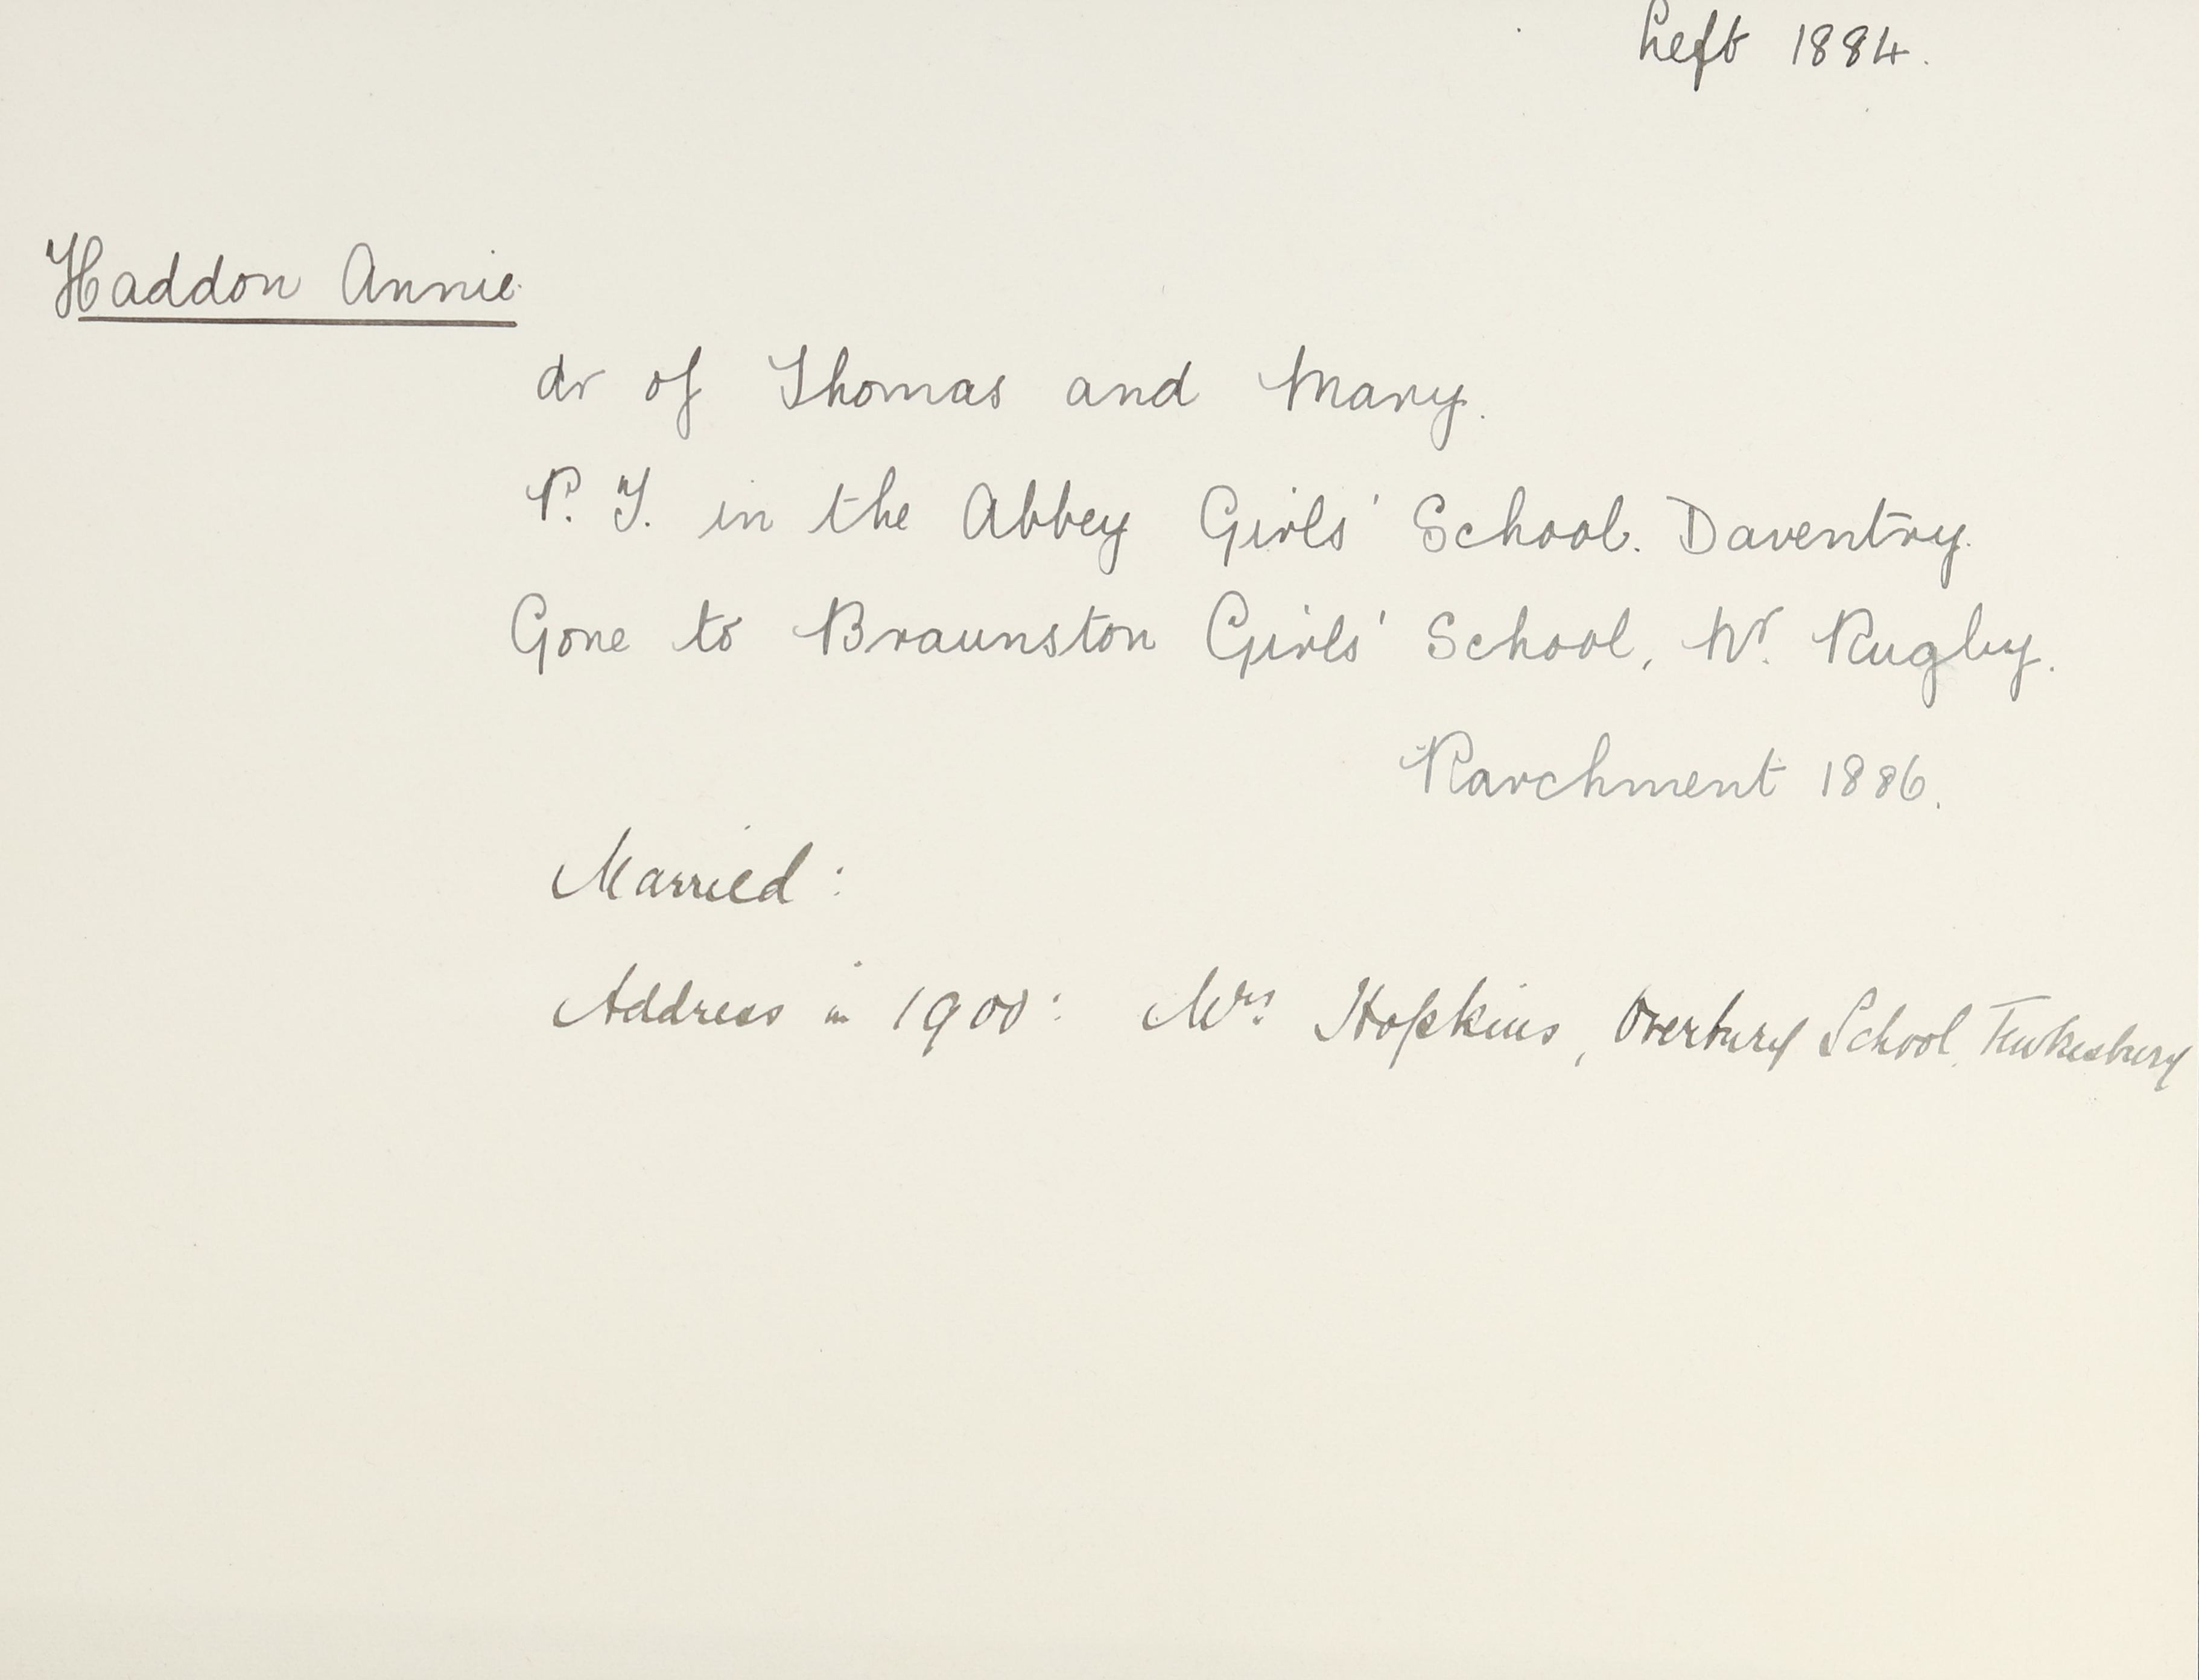 Left 1884.
Haddon Annie.
dr of Thomas and Mary.
P. T. in the Abbey Girls' School. Daventry.
Gone to Braunston Girls' School, Nr. Rugby.
Parchment 1886.
Married :
Address in 1900: Mrs Hopkins, Overbury School, Tewkesbury